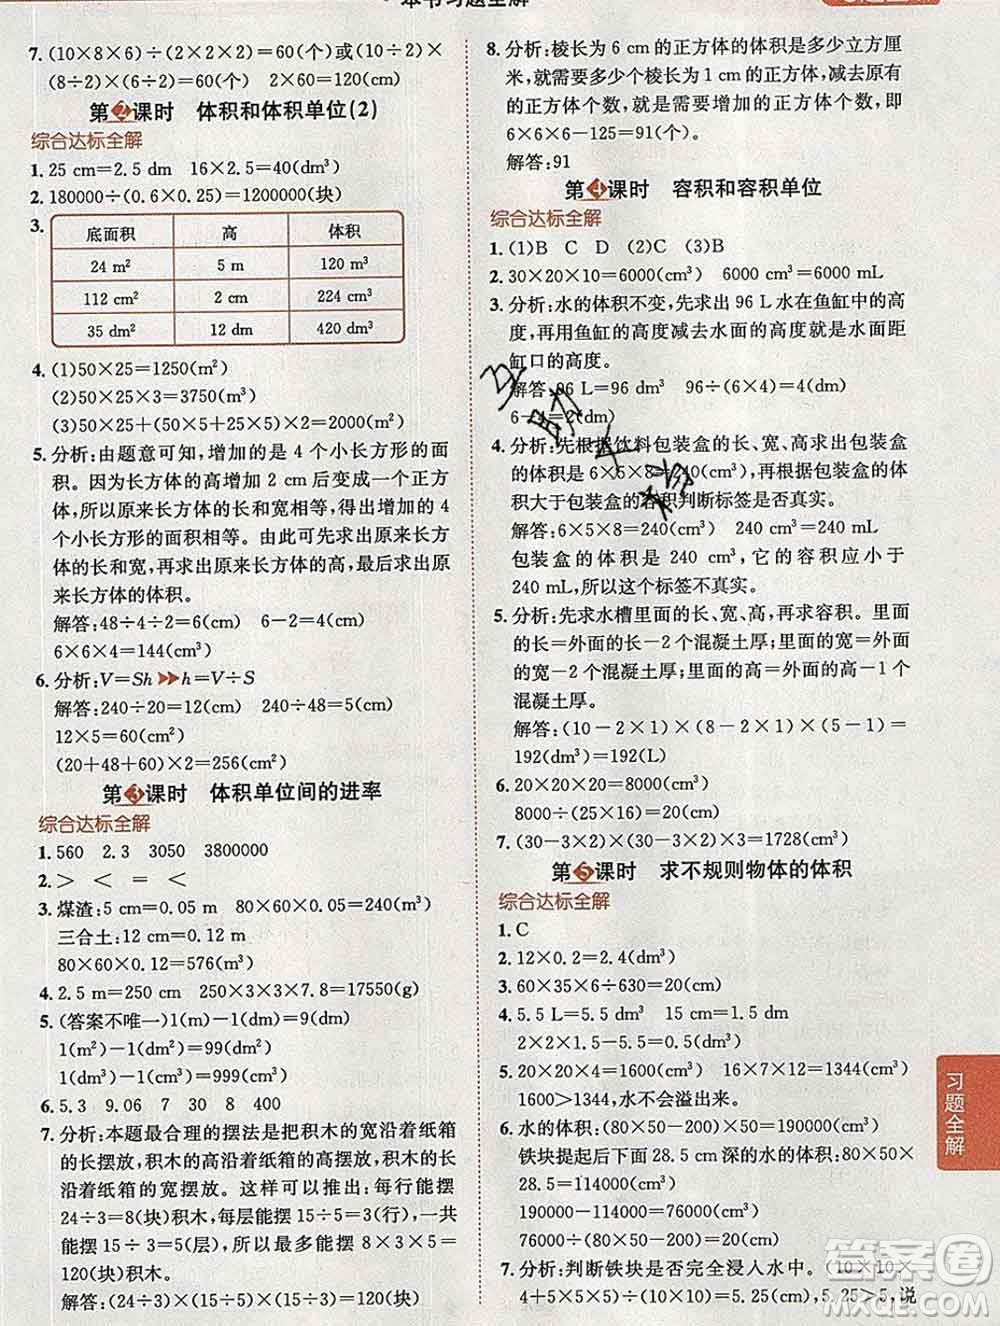 本书习题全解
7. (10×8×6)÷(2×2×2)=60(个)或(10÷2)×
(8÷2)×(6÷2)=60(个)　2×60=120(cm)
第2课时　体积和体积单位(2)
综合达标全解
1. 25 cm=2.5 dm　16×2.5=40(dm³)
2. 180000÷(0.6×0.25)=1200000(块)
3.
底面积　高　体积
24 m²　5 m　120 m³
112 cm²　2 cm　224 cm³
35 dm²　12 dm　420 dm³
4. (1)50×25=1250(m²)
(2)50×25×3=3750(m³)
(3)50×25+(50×5+25×5)×2=2000(m²)
5. 分析:由题意可知,增加的是4个小长方形的面
积。因为长方体的高增加2 cm后变成一个正方
体,所以原来长方体的长和宽相等,得出增加的4
个小长方形的面积相等。由此可先求出原来长方
体的长和宽,再求出原来长方体的高,最后求出原
来长方体的体积。
解答:48÷4÷2=6(cm)　6-2=4(cm)
6×6×4=144(cm³)
6. 分析:V=Sh h=V÷S
解答:240÷20=12(cm)　240÷48=5(cm)
12×5=60(cm²)
(20+48+60)×2=256(cm²)
第3课时　体积单位间的进率
综合达标全解
1. 560　2.3　3050　3800000
2. >　<　=　<
3. 煤渣:5 cm=0.05 m　80×60×0.05=240(m³)
三合土:12 cm=0.12 m
80×60×0.12=576(m³)
4. 2.5 m=250 cm　250×3×3×7.8=17550(g)
5. (答案不唯一)1(m)-1(dm)=9(dm)
1(m²)-1(dm²)=99(dm²)
1(dm³)-1(cm³)=999(cm³)
6. 5.3　9.06　7　30　8　400
7. 分析:本题最合理的摆法是把积木的宽沿着纸箱
的长摆放,积木的高沿着纸箱的高摆放,积木的长
沿着纸箱的宽摆放。这样可以推出:每行能摆
24÷3=8(块)积木,每层能摆15÷5=3(行),一共
能摆15÷3=5(层),所以最多能摆8×3×5=
120(块)积木。
解答:(24÷3)×(15÷5)×(15÷3)=120(块)
8. 分析:棱长为6 cm的正方体的体积是多少立方厘
米,就需要多少个棱长为1 cm的正方体,减去原有
的正方体个数,就是需要增加的正方体个数,即
6×6×6-125=91(个)。
解答:91
第4课时　容积和容积单位
综合达标全解
1. (1)B　C　D　(2)C　(3)B
2. 30×20×10=6000(cm³)　6000 cm³=6000 mL
3. 分析:水的体积不变,先求出96 L水在鱼缸中的高
度,再用鱼缸的高度减去水面的高度就是水面距
缸口的高度。
解答:96 L=96 dm³　96÷(6×4)=4(dm)
6-4=2(dm)
4. 分析:先根据饮料包装盒的长、宽、高求出包装盒
的体积是6×5×8=240(cm³),再根据包装盒的体
积大于包装盒的容积判断标签是否真实。
解答:6×5×8=240(cm³)　240 cm³=240 mL
包装盒的体积是240 cm³,它的容积应小于
240 mL,所以这个标签不真实。
5. 分析:先求水槽里面的长、宽、高,再求容积。里面
的长=外面的长-2个混凝土厚;里面的宽=外面
的宽-2个混凝土厚;里面的高=外面的高-1个
混凝土厚。
解答:(10-2×1)×(8-2×1)×(5-1)=
192(dm³)=192(L)
6. 20×20×20=8000(cm³)
8000÷(25×16)=20(cm)
7. (30-3×2)×(30-3×2)×3=1728(cm³)
第5课时　求不规则物体的体积
综合达标全解
1. C
2. 12×0.2=2.4(dm³)
3. 60×35×6÷630=20(cm)
4. 5.5 L=5.5 dm³　15 cm=1.5 dm
2×2×1.5-5.5=0.5(dm³)
5. 20×20×4=1600(cm³)　16×7×12=1344(cm³)
1600>1344,水不会溢出来。
6. 水的体积:(80×50-50×2)×50=190000(cm³)
铁块提起后下面28.5 cm深的水的体积:80×50×
28.5=114000(cm³)
190000-114000=76000(cm³)
76000÷(80×50-50×2-200)=20(cm)
7. 分析:判断铁块是否完全浸入水中。(10×10×
4+5×5×5)÷(10×10)=5.25(cm),5.25>5,说
习题全解
答案圈
MXQE.COM